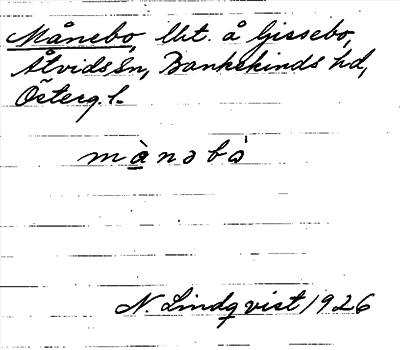 Månebo, lht. å Gissebo,
Åtvids sn, Bankekinds hd,
Österg. l.
mànəbò
N. Lindqvist 1926